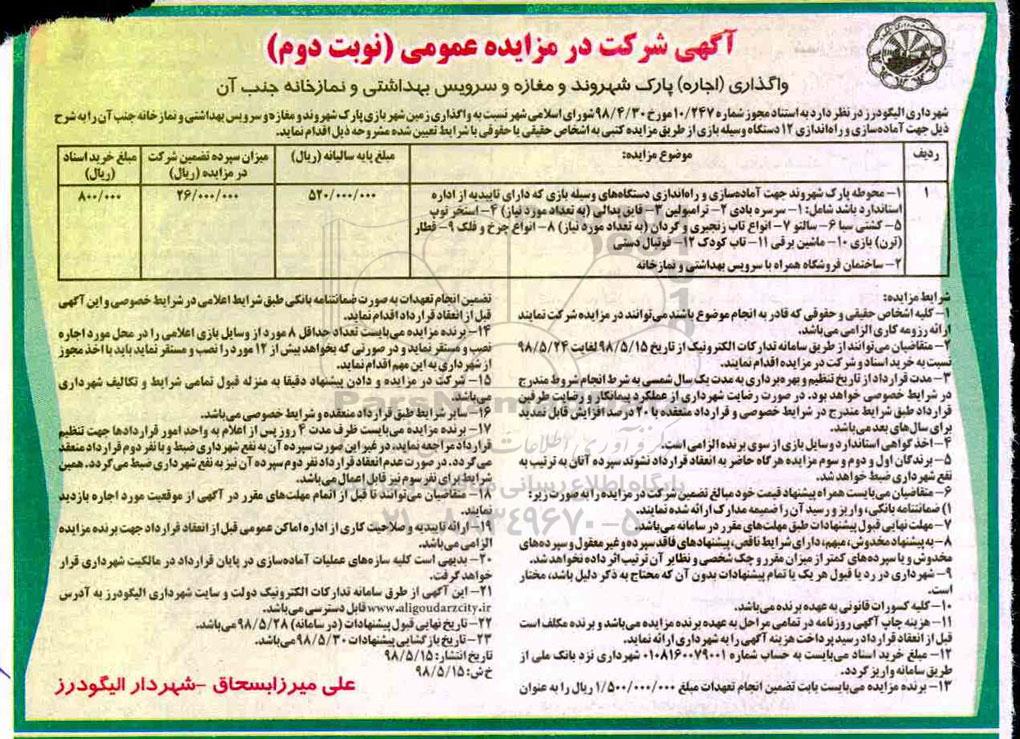 آگهی شرکت در مزایده عمومی (نوبت دوم)
واگذاری (اجاره) پارک شهروند و مغازه و سرویس بهداشتی و نمازخانه جنب آن
شهرداری الیگودرز در نظر دارد به استناد مجوز شماره ۱۰/۲۴۷ مورخ ۹۸/۴/۳۰ شورای اسلامی شهر نسبت به واگذاری زمین شهربازی پارک شهروند و مغازه و سرویس بهداشتی و نمازخانه جنب آن را به شرح
ذیل جهت آماده‌سازی و راه‌اندازی ۱۲ دستگاه وسیله بازی از طریق مزایده کتبی به اشخاص حقیقی یا حقوقی با شرایط تعیین شده مشروحه ذیل اقدام نماید.
ردیف
موضوع مزایده:
مبلغ پایه سالیانه (ریال)
میزان سپرده تضمین شرکت در مزایده (ریال)
مبلغ خرید اسناد (ریال)
۱
۱- محوطه پارک شهروند جهت آماده‌سازی و راه‌اندازی دستگاه‌های وسیله بازی که دارای تاییدیه از اداره
استاندارد باشد شامل: ۱- سرسره بادی ۲- ترامبولین ۳- قایق پدالی (به تعداد مورد نیاز) ۴- استخر توپ
۵- کشتی سبا ۶- سالتو ۷- انواع تاب زنجیری و گردان (به تعداد مورد نیاز) ۸- انواع چرخ و فلک ۹- قطار
(ترن) بازی ۱۰- ماشین برقی ۱۱- تاب کودک ۱۲- فوتبال دستی
۲- ساختمان فروشگاه همراه با سرویس بهداشتی و نمازخانه
۵۲۰/۰۰۰/۰۰۰
۲۶/۰۰۰/۰۰۰
۸۰۰/۰۰۰
شرایط مزایده:
۱- کلیه اشخاص حقیقی و حقوقی که قادر به انجام موضوع باشند می‌توانند در مزایده شرکت نمایند
ارائه رزومه کاری الزامی می‌باشد.
۲- متقاضیان می‌توانند از طریق سامانه تدارکات الکترونیک از تاریخ ۹۸/۵/۱۵ لغایت ۹۸/۵/۲۴
نسبت به خرید اسناد و شرکت در مزایده اقدام نمایند.
۳- مدت قرارداد از تاریخ تنظیم و بهره‌برداری به مدت یک سال شمسی به شرط انجام شروط مندرج
در شرایط خصوصی خواهد بود. در صورت رضایت شهرداری از عملکرد پیمانکار و رضایت طرفین
قرارداد طبق شرایط مندرج در شرایط خصوصی و قرارداد منعقده با ۲۰ درصد افزایش قابل تمدید
برای سال‌های بعد می‌باشد.
۴- اخذ گواهی استاندارد وسایل بازی از سوی برنده الزامی است.
۵- برندگان اول و دوم و سوم مزایده هرگاه حاضر به انعقاد قرارداد نشوند سپرده آنان به ترتیب به
نفع شهرداری ضبط خواهد شد.
۶- متقاضیان می‌بایست همراه پیشنهاد قیمت خود مبالغ تضمین شرکت در مزایده را به صورت زیر:
۱) ضمانتنامه بانکی، واریز و رسید آن را ضمیمه مدارک ارائه شده نمایند.
۷- مهلت نهایی قبول پیشنهادات طبق مهلت‌های مقرر در سامانه می‌باشد.
۸- به پیشنهاد مخدوش، مبهم، دارای شرایط ناقص، پیشنهادهای فاقد سپرده و غیرمعقول و سپرده‌های
مخدوش و یا سپرده‌های کمتر از میزان مقرر و چک شخصی و نظایر آن ترتیب اثر داده نخواهد شد.
۹- شهرداری در رد یا قبول هر یک یا تمام پیشنهادات بدون آن که محتاج به ذکر دلیل باشد، مختار
است.
۱۰- کلیه کسورات قانونی به عهده برنده می‌باشد.
۱۱- هزینه چاپ آگهی روزنامه در تمامی مراحل به عهده برنده مزایده می‌باشد و برنده مکلف است
قبل از انعقاد قرارداد رسید پرداخت هزینه آگهی را به شهرداری ارائه نماید.
۱۲- مبلغ خرید اسناد می‌بایست به حساب شماره ۰۱۰۸۱۶۰۰۷۹۰۰۱ شهرداری نزد بانک ملی از
طریق سامانه واریز گردد.
۱۳- برنده مزایده می‌بایست بابت تضمین انجام تعهدات مبلغ ۱/۵۰۰/۰۰۰/۰۰۰ ریال را به عنوان
تضمین انجام تعهدات به صورت ضمانتنامه بانکی طبق شرایط اعلامی در شرایط خصوصی و این آگهی
قبل از انعقاد قرارداد اقدام نماید.
۱۴- برنده مزایده می‌بایست تعداد حداقل ۸ مورد از وسایل بازی اعلامی را در محل مورد اجاره
نصب و مستقر نماید و در صورتی که بخواهد بیش از ۱۲ مورد را نصب و مستقر نماید باید با اخذ مجوز
از شهرداری به این مهم اقدام نماید.
۱۵- شرکت در مزایده و دادن پیشنهاد دقیقا به منزله قبول تمامی شرایط و تکالیف شهرداری
می‌باشد.
۱۶- سایر شرایط طبق قرارداد منعقده و شرایط خصوصی می‌باشد.
۱۷- برنده مزایده می‌بایست ظرف مدت ۴ روز پس از اعلام به واحد امور قراردادها جهت تنظیم
قرارداد مراجعه نماید، در غیر این صورت سپرده آن به نفع شهرداری ضبط و با نفر دوم قرارداد منعقد
می‌گردد. در صورت عدم انعقاد قرارداد نفر دوم سپرده آن نیز به نفع شهرداری ضبط می‌گردد. همین
شرایط برای نفر سوم نیز قابل اعمال می‌باشد.
۱۸- متقاضیان می‌توانند تا قبل از اتمام مهلت‌های مقرر در آگهی از موقعیت مورد اجاره بازدید
نمایند.
۱۹- ارائه تاییدیه و صلاحیت کاری از اداره اماکن عمومی قبل از انعقاد قرارداد جهت برنده مزایده
الزامی می‌باشد.
۲۰- بدیهی است کلیه سازه‌های عملیات آماده‌سازی در پایان قرارداد در مالکیت شهرداری قرار
خواهد گرفت.
۲۱- این آگهی از طرق سامانه تدارکات الکترونیک دولت و سایت شهرداری الیگودرز به آدرس
www.aligoudarzcity.ir قابل دسترسی می‌باشد.
۲۲- تاریخ نهایی قبول پیشنهادات (در سامانه) ۹۸/۵/۲۸ می‌باشد.
۲۳- تاریخ بازگشایی پیشنهادات ۹۸/۵/۳۰ می‌باشد.
تاریخ انتشار: ۹۸/۵/۱۵
خ ش: ۹۸/۵/۱۵
علی میرزابسحاق - شهردار الیگودرز